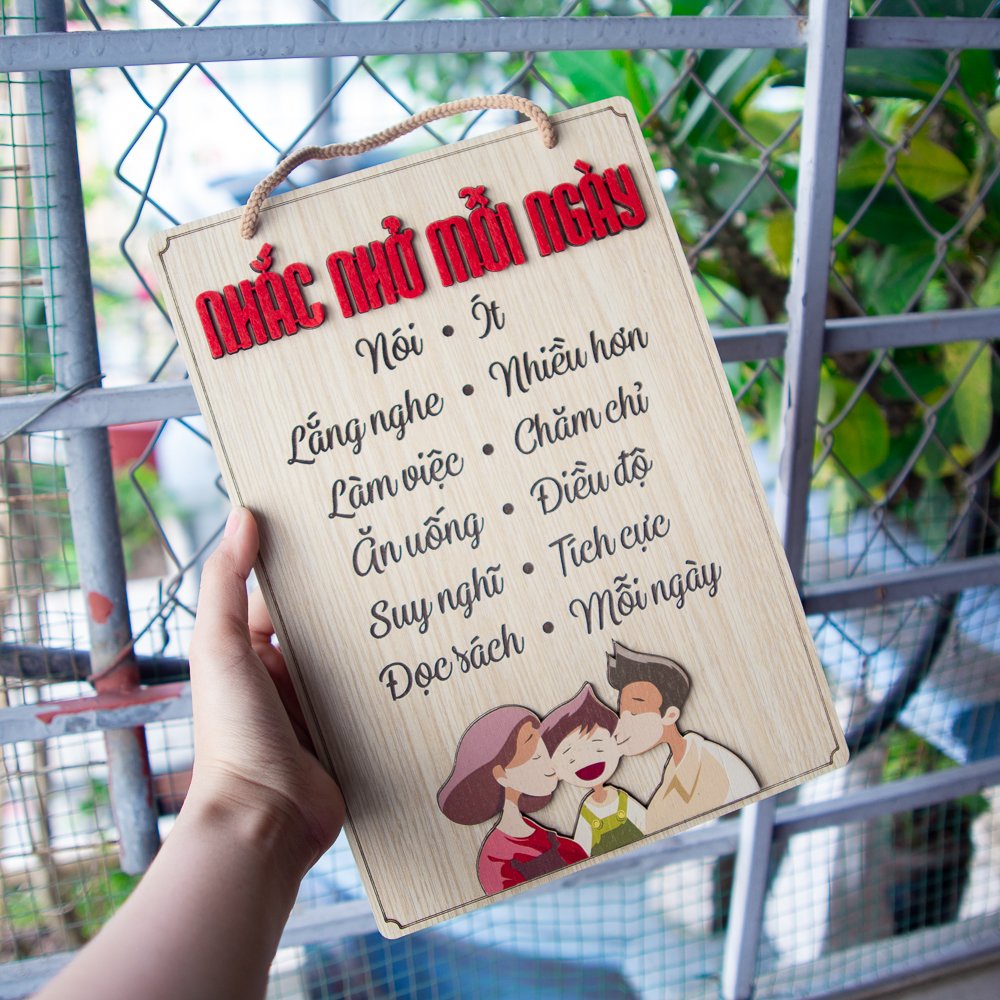 NHẮC NHỞ MỖI NGÀY
Nói • Ít
Lắng nghe • Nhiều hơn
Làm việc • Chăm chỉ
Ăn uống • Điều độ
Suy nghĩ • Tích cực
Đọc sách • Mỗi ngày